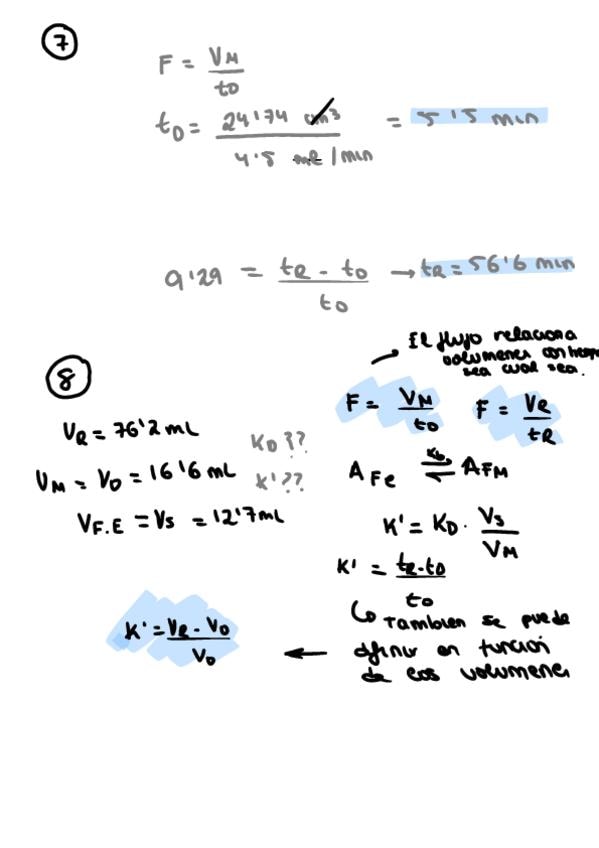 7
F = VM / to
to = 24'74 cm³ / 4.5 ml/min = 5'5 min
9'29 = tR - to / to → tR = 56'6 min
8
→ El flujo relaciona
volumenes con
sea cual sea.
F = VM / to F = VR / tR
VR = 76'2 mL
KD ??
VM = Vo = 16'6 mL
K' ??
VF.E = Vs = 12'7 mL
A Fe ⇌ KD A FM
K' = KD · Vs / VM
K' = tR-to / to
↳ Tambien se puede
definir en funcion
de los volumenes
K' = VR - Vo / Vo ←